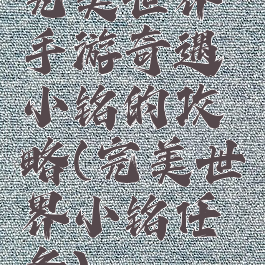 完美世界
手游奇遇
小铭的攻
略(完美世
界小铭任
务)